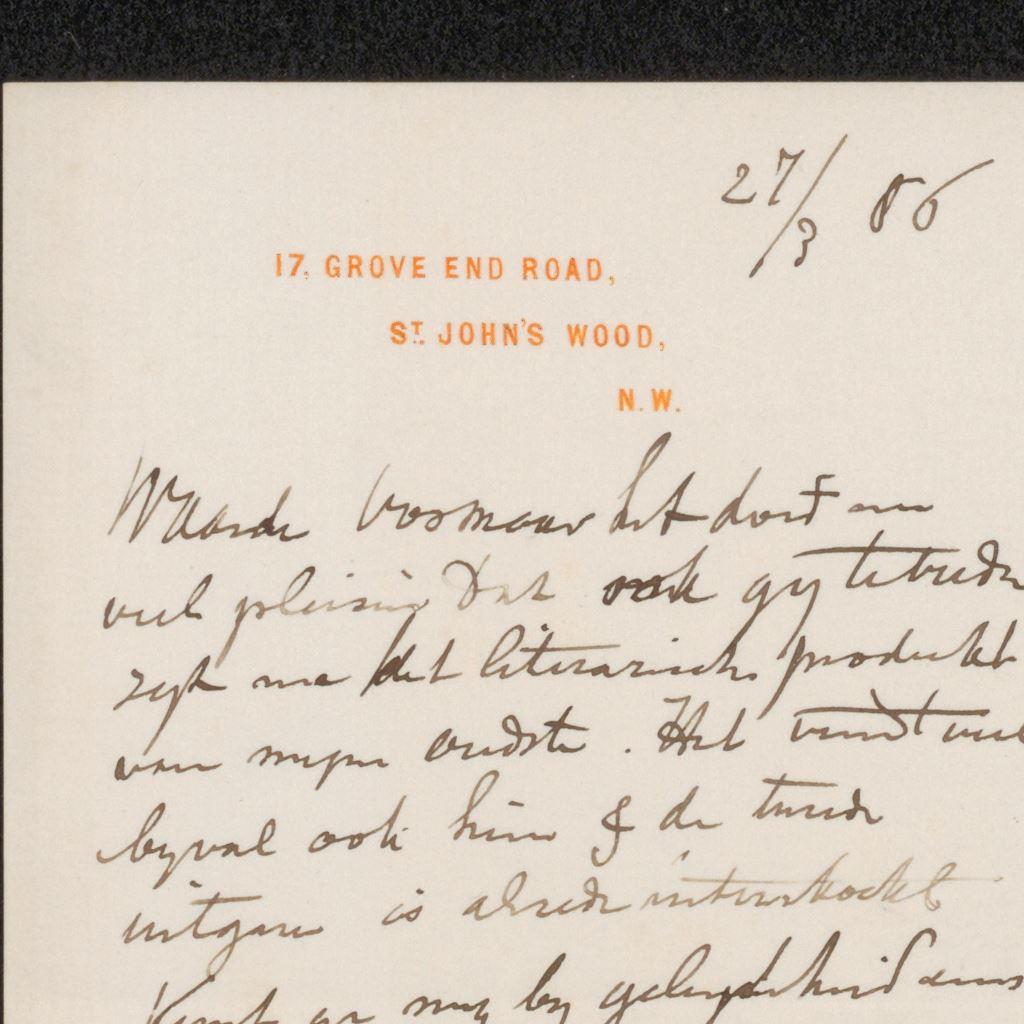 27/3 86
17, GROVE END ROAD,
ST. JOHN'S WOOD,
N. W.
Waarde Vosmaer het doet me
veel pleisir dat ook gy tevreden
zyt me het literarisch produkt
van myne oudste. Het vindt veel
byval ook hier & de tweede
uitgave is alrede uitverkocht
Kunt ge my by gelegenheid eens